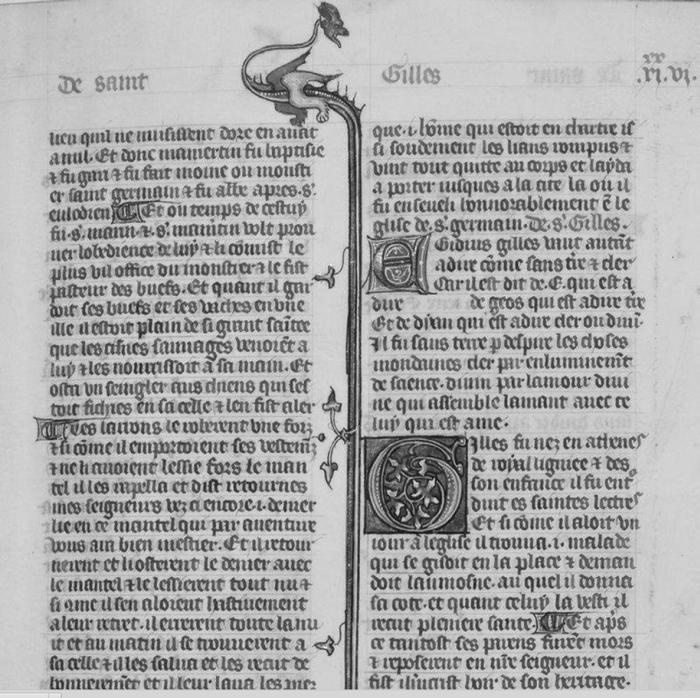 De saint
Gilles
.xx.
.vi. vi.
lieu quil ne nuisissent dore en auāt
a nul. Et donc mamertin fu baptisie
⁊ fu gari ⁊ fu fait moine ou monsti
er saint germain ⁊ fu abbe apres. s'.
Et ou temps de cestuy
fu .s'. marin. ⁊ .s'. mamtin volt prou
uer lobedience de luy ⁊ li cōmist le
plus vil office du monstier ⁊ le fist
pasteur des buefs. Et quant il gar
doit ses buefs et ses vaches en vne
ille il estoit plain de si grant saītee
que les cisnes sauuages venoiēt a
luy ⁊ les nourrissoit a sa main. Et
osta vn sengler aus chiens qui ses
toit fichies en sa celle ⁊ len fist aler
Les larrons le roberent vne foiz
⁊ si cōme il emportoient ses vestemēz
⁊ ne li auoient lessie fors le man
tel il les rapella et dist retournes
mes seigneurs vez ci encore .i. denier
lie en ce mantel qui par auenture
vous aura bien mestier. Et il retour
nerent et li osterent le denier auec
le mantel ⁊ le lessierent tout nu ⁊
si cōme il sen aloient hastiuement
a leur retret. il errerent toute la nu
it et au matin il se trouuerent a
sa celle ⁊ il les salua et les recut de
bonnemēt et il leur laua les piez
que .i. hōme qui estoit en chartre is
si soudement les lians rompus ⁊
vint tout quitte au corps et layda
a porter iusques a la cite la ou il
fu enseueli honnorablement ē le
glise de .s'. germain. De .s'. Gilles.
Egidius gilles vaut autāt
a dire cōme sans tīre ⁊ cler
Car il est dit de .E. qui est a
dire de geos qui est a dire tīre
Et de dyan qui est a dire cler ou diuin.
Il fu sans terre ꝑ despire les choses
mondaines cler par enluminemēt
de science. diuin par lamour diui
ne qui assemble lamant auec ce
luy qui est ame.
Gilles fu nez en athenes
de royal lignee ⁊ des
son enfance il fu ent
duit es saintes lectres
Et si cōme il aloit vn
iour a leglise il trouua .i. malade
qui se gisoit en la place ⁊ deman
doit laumosne. au quel il donna
sa cote. et quant celuy la vesti il
recut pleniere sante. Et apṡ
ce tantost ses parens furēt mors
⁊ reposerent en nr̄e seigneur. et il
fist ihūcrist hoir de son heritage.